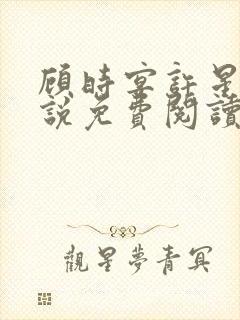 顾時宴許星
說免費閱讀
觀星夢青冥